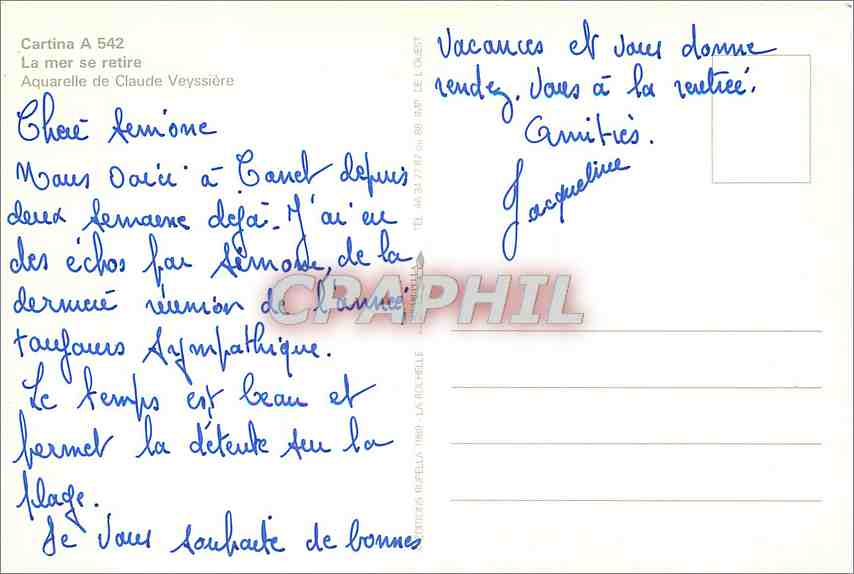 Cartina A 542
La mer se retire
Aquarelle de Claude Veyssière
Chère Simone
Nous voici à Canet depuis
deux semaine dejà. J'ai eu
des échos par Simone, de la
dernière réunion de l'année,
toujours sympathique.
Le temps est beau et
permet la détente sur la
plage.
Je vous souhaite de bonnes
vacances et vous donne
rendez-vous à la rentrée.
Amitiés.
Jacqueline
EDITIONS RUPELLA 1989 - LA ROCHELLE
IMP. DE L'OUEST
CPAPHIL